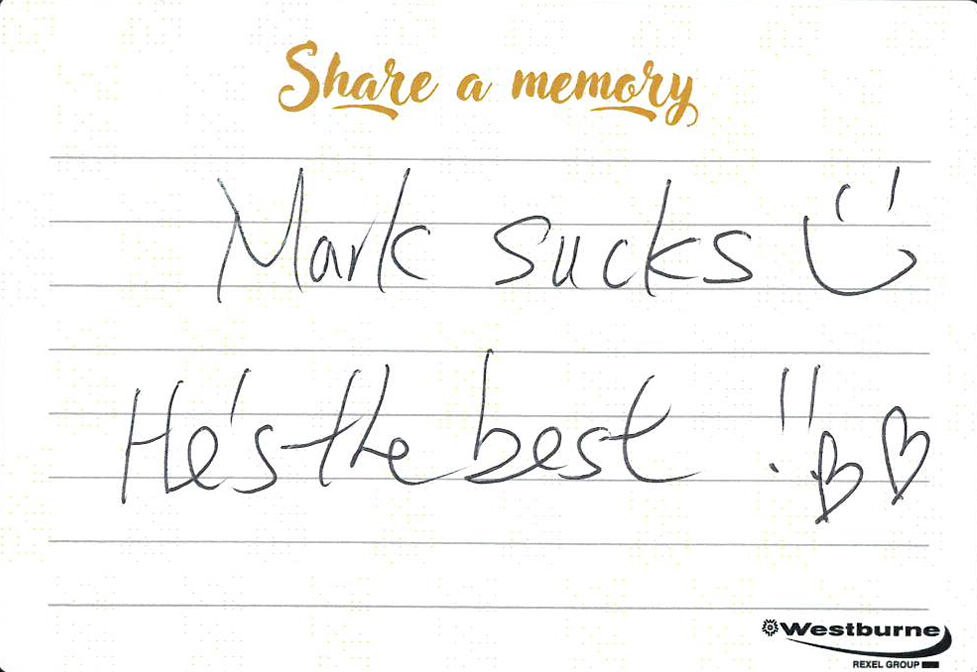 Share a memory
Mark sucks
He's the best !!
Westburne
REXEL GROUP